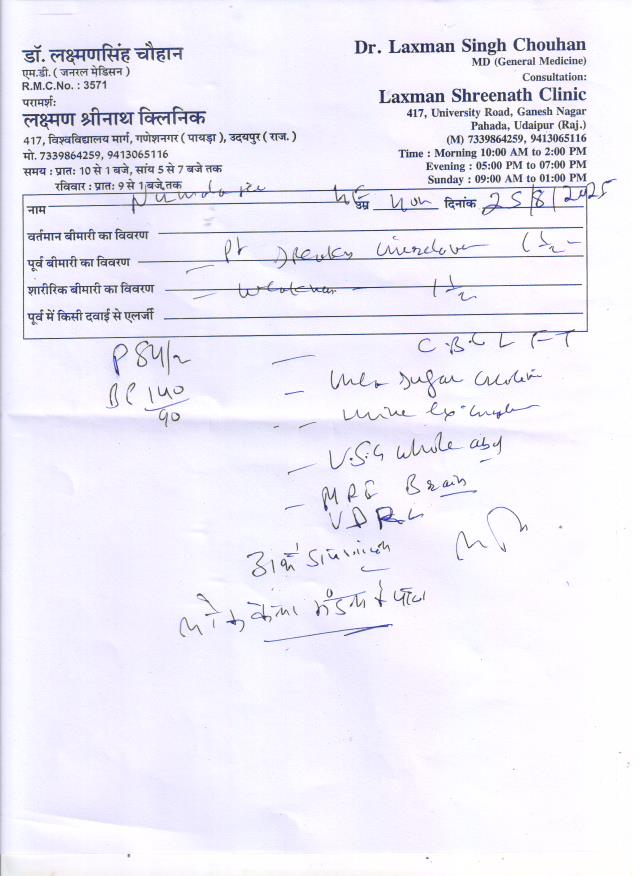 डॉ. लक्ष्मणसिंह चौहान
एम.डी. ( जनरल मेडिसन )
R.M.C.No. : 3571
परामर्श:
लक्ष्मण श्रीनाथ क्लिनिक
417, विश्वविद्यालय मार्ग, गणेशनगर ( पायड़ा ), उदयपुर ( राज. )
मो. 7339864259, 9413065116
समय : प्रातः 10 से 1 बजे, सांय 5 से 7 बजे तक
रविवार : प्रातः 9 से 1 बजे तक
Dr. Laxman Singh Chouhan
MD (General Medicine)
Consultation:
Laxman Shreenath Clinic
417, University Road, Ganesh Nagar
Pahada, Udaipur (Raj.)
(M) 7339864259, 9413065116
Time : Morning 10:00 AM to 2:00 PM
Evening : 05:00 PM to 07:00 PM
Sunday : 09:00 AM to 01:00 PM
नाम उम्र दिनांक 25/8/2025
वर्तमान बीमारी का विवरण
पूर्व बीमारी का विवरण Pt 1 1/2
शारीरिक बीमारी का विवरण 1 1/2
पूर्व में किसी दवाई से एलर्जी
P 84/2
BP 140/90
C.B.C LFT
Urea Sugar
Urine
U.S.G whole abd
MRI Brain
VDRL